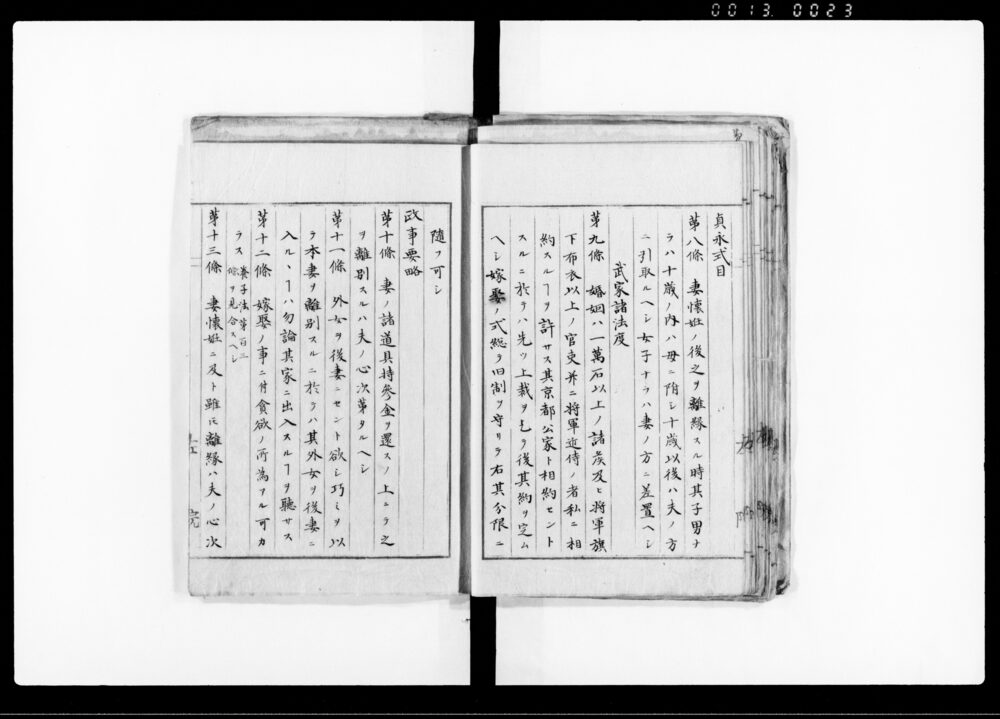 0013. 0023
貞永式目
第八條　妻懐妊ノ後之ヲ離縁スル時其子男ナ
ラハ十歳ノ内ハ母ニ附シ十歳以後ハ夫ノ方
ニ引取ルヘシ女子ナラハ妻ノ方ニ差置ヘシ
武家諸法度
第九條　婚姻ハ一萬石以上ノ諸侯及ヒ将軍旗
下布衣以上ノ官吏并ニ将軍近侍ノ者私ニ相
約スルヿヲ許サス其京都公家ト相約セント
スルニ於テハ先ツ上裁ヲ乞フ後其約ヲ定ム
ヘシ嫁娶ノ式総テ旧制ヲ守リテ右其分限ニ
随フ可シ
政事要略
第十條　妻ノ諸道具持参金ヲ還スノ上ニテ之
ヲ離別スルハ夫ノ心次第タルヘシ
第十一條　外女ヲ後妻ニセント欲シ巧ミヲ以
テ本妻ヲ離別スルニ於テハ其外女ヲ後妻ニ
入ルヽヿハ勿論其家ニ出入スルヿヲ聴サス
第十二條　嫁娶ノ事ニ付貪欲ノ所為ヲル可カ
ラス　養子法第百三條ヲ見合スヘシ
第十三條　妻懐妊ニ及ト雖𪜈離縁ハ夫ノ心次